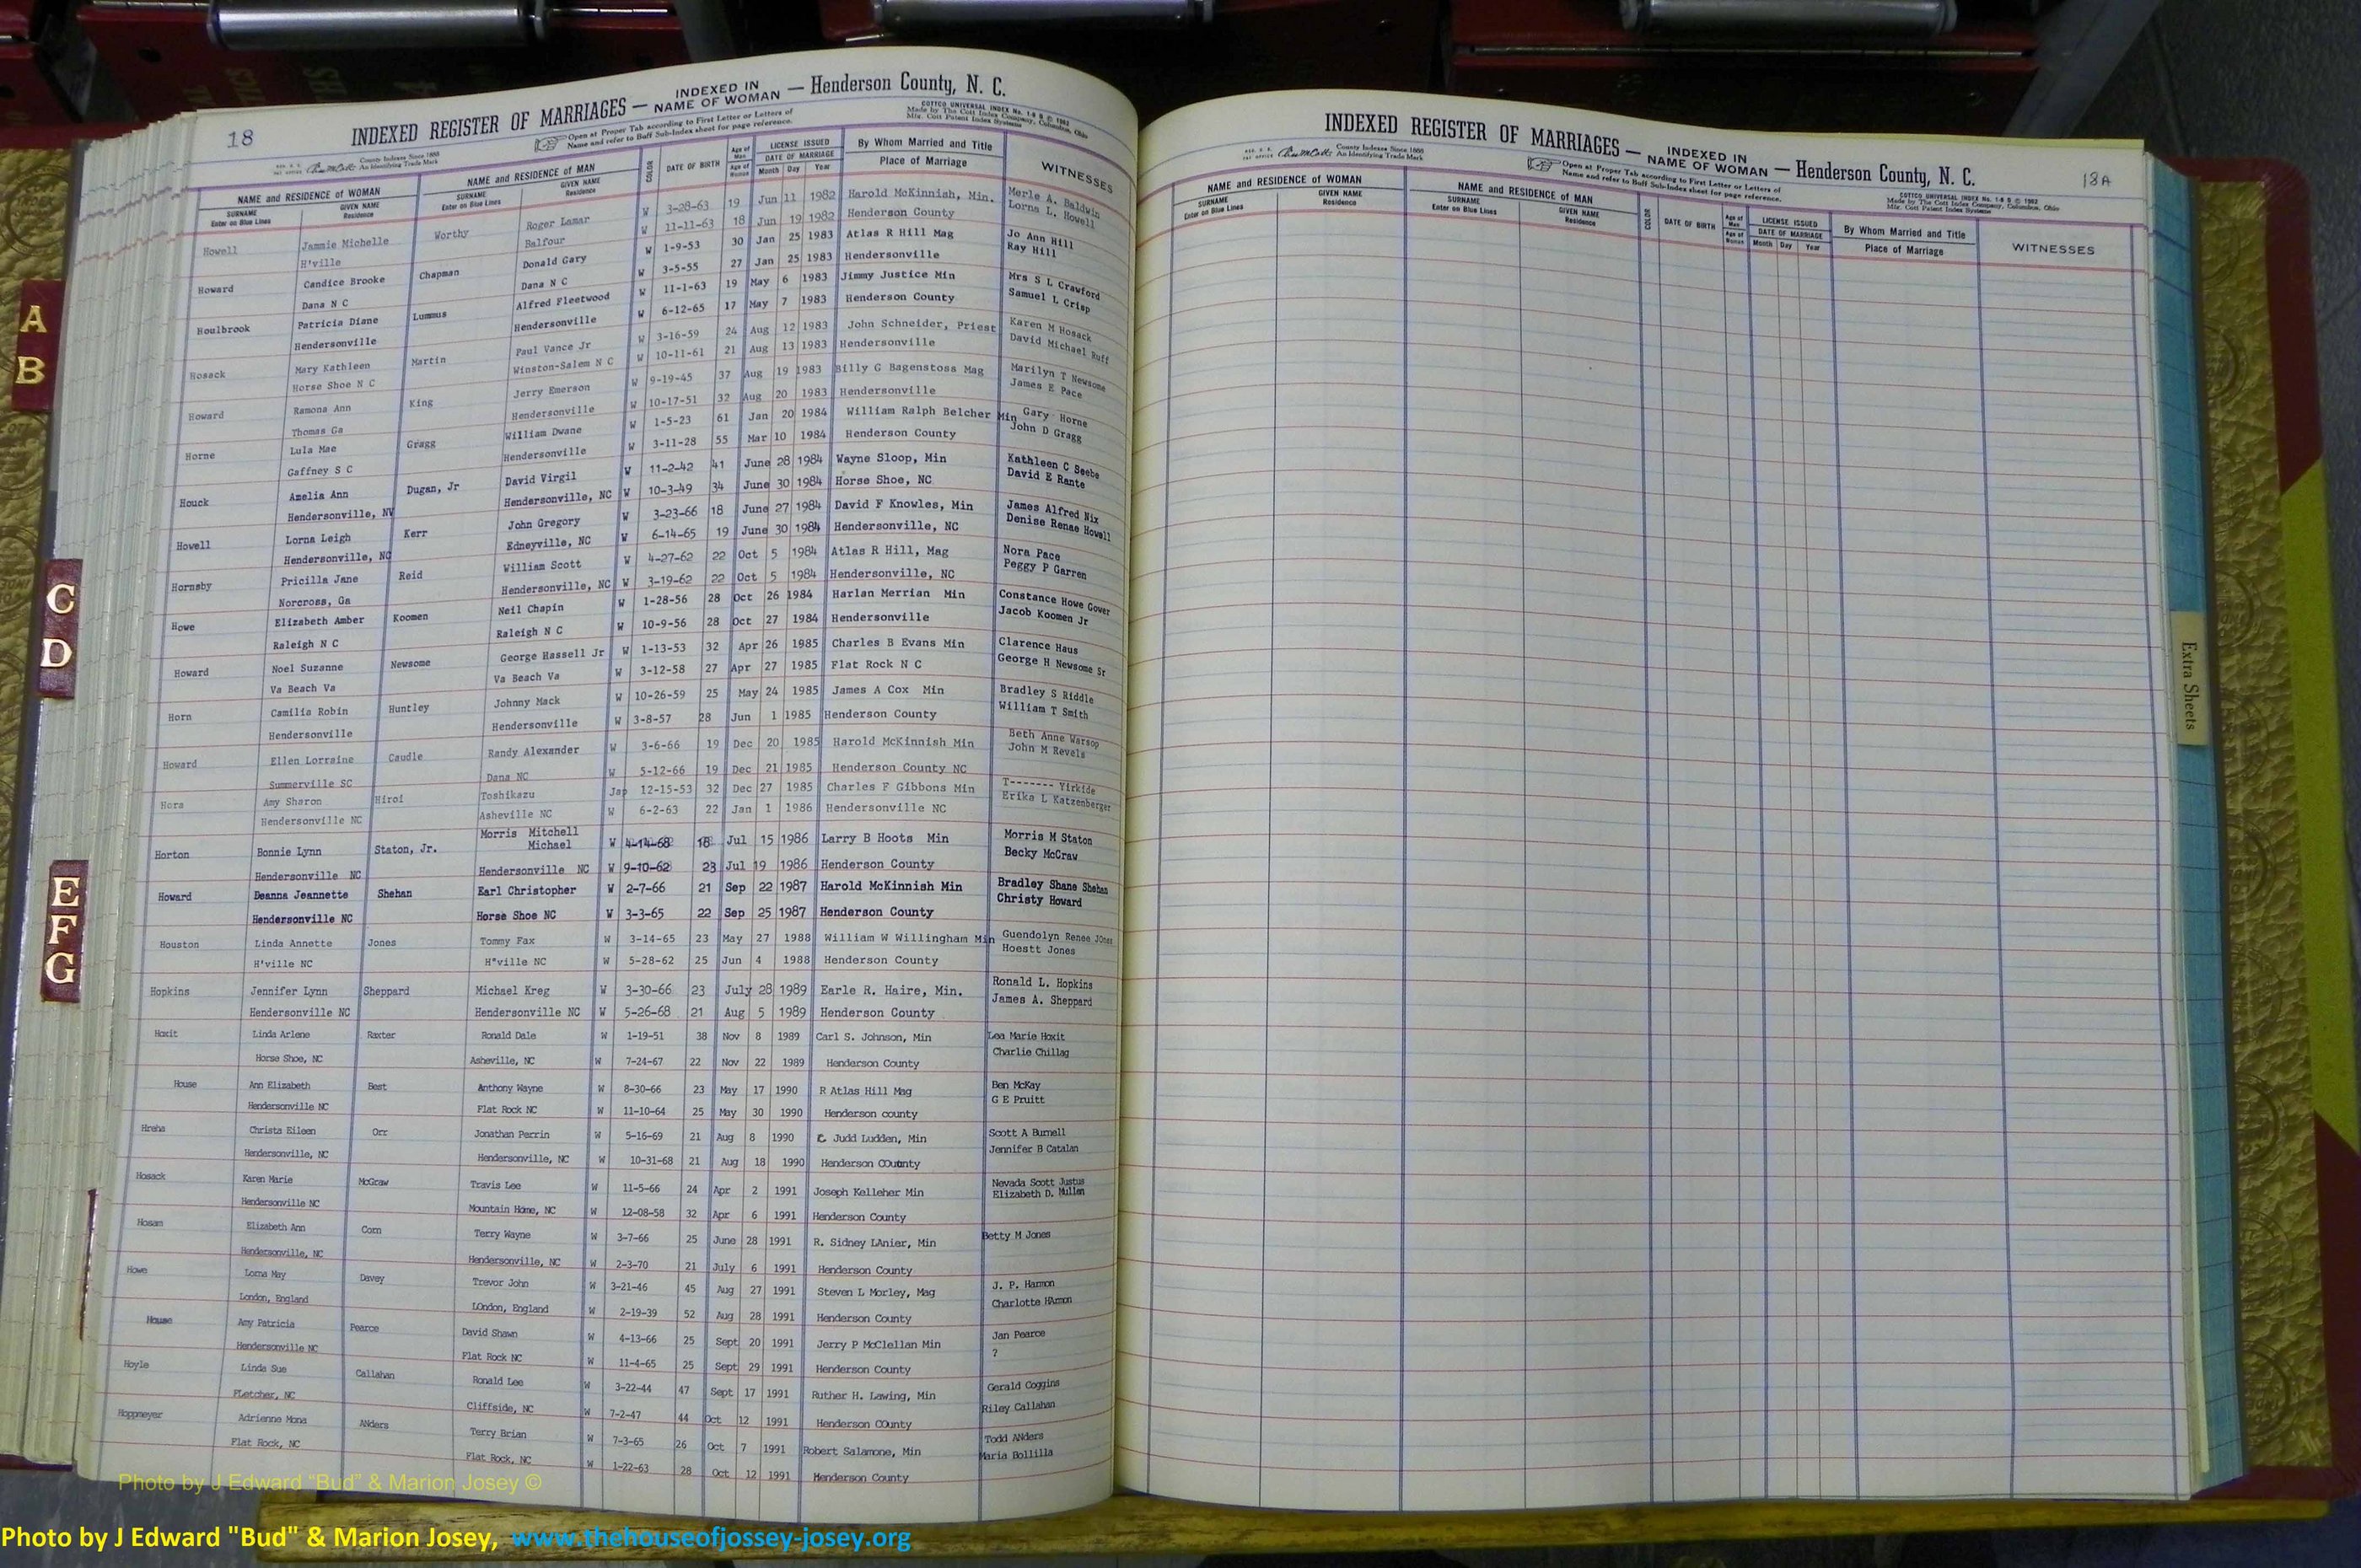 18
INDEXED REGISTER OF MARRIAGES — INDEXED IN NAME OF WOMAN — Henderson County, N. C.
County Indexes Since 1888
An Identifying Trade Mark
Open at Proper Tab according to First Letter or Letters of
Name and refer to Buff Sub-Index sheet for page reference.
COTTCO UNIVERSAL INDEX
Made by The Cott Index Company, Columbus, Ohio
Mfr. Cott Patent Index Systems
NAME and RESIDENCE of WOMAN NAME and RESIDENCE of MAN COLOR DATE OF BIRTH Age of Man LICENSE ISSUED By Whom Married and Title WITNESSES
SURNAME GIVEN NAME SURNAME GIVEN NAME Age of Woman DATE OF MARRIAGE Place of Marriage
Enter on Blue Lines Residence Enter on Blue Lines Residence Month Day Year
Howell Jammie Michelle Worthy Roger Lamar W 3-28-63 19 Jun 11 1982 Harold McKinnish, Min. Merle A. Baldwin
H'ville Balfour W 11-11-63 18 Jun 19 1982 Henderson County Lorna L. Howell
Howard Candice Brooke Chapman Donald Gary W 1-9-53 30 Jan 25 1983 Atlas R Hill Mag Jo Ann Hill
Dana N C Dana N C W 3-5-55 27 Jan 25 1983 Hendersonville Ray Hill
Houlbrook Patricia Diane Lummus Alfred Fleetwood W 11-1-63 19 May 6 1983 Jimmy Justice Min Mrs S L Crawford
Hendersonville Hendersonville W 6-12-65 17 May 7 1983 Henderson County Samuel L Crisp
Hosack Mary Kathleen Martin Paul Vance Jr W 3-16-59 24 Aug 12 1983 John Schneider, Priest Karen M Hosack
Horse Shoe N C Winston-Salem N C W 10-11-61 21 Aug 13 1983 Hendersonville David Michael Ruff
Howard Ramona Ann King Jerry Emerson W 9-19-45 37 Aug 19 1983 Billy G Bagenstoss Mag Marilyn T Newsome
Thomas Ga Hendersonville W 10-17-51 32 Aug 20 1983 Hendersonville James E Pace
Horne Lula Mae Gragg William Dwane W 1-5-23 61 Jan 20 1984 William Ralph Belcher Min Gary Horne
Gaffney S C Hendersonville W 3-11-28 55 Mar 10 1984 Henderson County John D Gragg
Houck Amelia Ann Dugan, Jr David Virgil W 11-2-42 41 June 28 1984 Wayne Sloop, Min Kathleen C Seebe
Hendersonville, NV Hendersonville, NC W 10-3-49 34 June 30 1984 Horse Shoe, NC David E Rante
Howell Lorna Leigh Kerr John Gregory W 3-23-66 18 June 27 1984 David F Knowles, Min James Alfred Nix
Hendersonville, NC Edneyville, NC W 6-14-65 19 June 30 1984 Hendersonville, NC Denise Renae Howell
Hornsby Pricilla Jane Reid William Scott W 4-27-62 22 Oct 5 1984 Atlas R Hill, Mag Nora Pace
Norcross, Ga Hendersonville, NC W 3-19-62 22 Oct 5 1984 Hendersonville, NC Peggy P Garren
Howe Elizabeth Amber Koomen Neil Chapin W 1-28-56 28 Oct 26 1984 Harlan Merrian Min Constance Howe Gover
Raleigh N C Raleigh N C W 10-9-56 28 Oct 27 1984 Hendersonville Jacob Koomen Jr
Howard Noel Suzanne Newsome George Hassell Jr W 1-13-53 32 Apr 26 1985 Charles B Evans Min Clarence Haus
Va Beach Va Va Beach Va W 3-12-58 27 Apr 27 1985 Flat Rock N C George H Newsome Sr
Horn Camilia Robin Huntley Johnny Mack W 10-26-59 25 May 24 1985 James A Cox Min Bradley S Riddle
Hendersonville Hendersonville W 3-8-57 28 Jun 1 1985 Henderson County William T Smith
Howard Ellen Lorraine Caudle Randy Alexander W 3-6-66 19 Dec 20 1985 Harold McKinnish Min Beth Anne Warsop
Summerville SC Dana NC W 5-12-66 19 Dec 21 1985 Henderson County NC John M Revels
Hora Amy Sharon Hiroi Toshikazu Jap 12-15-53 32 Dec 27 1985 Charles F Gibbons Min T------- Yirkide
Hendersonville NC Asheville NC W 6-2-63 22 Jan 1 1986 Hendersonville NC Erika L Katzenberger
Horton Bonnie Lynn Staton, Jr. Morris Mitchell Michael W 4-14-68 18 Jul 15 1986 Larry B Hoots Min Morris M Staton
Hendersonville NC Hendersonville NC W 9-10-62 23 Jul 19 1986 Henderson County Becky McCraw
Howard Deanna Jeannette Shehan Earl Christopher W 2-7-66 21 Sep 22 1987 Harold McKinnish Min Bradley Shane Shehan
Hendersonville NC Horse Shoe NC W 3-3-65 22 Sep 25 1987 Henderson County Christy Howard
Houston Linda Annette Jones Tommy Fax W 3-14-65 23 May 27 1988 William W Willingham Min Guendolyn Renee Jones
H'ville NC H"ville NC W 5-28-62 25 Jun 4 1988 Henderson County Hoestt Jones
Hopkins Jennifer Lynn Sheppard Michael Kreg W 3-30-66 23 July 28 1989 Earle R. Haire, Min. Ronald L. Hopkins
Hendersonville NC Hendersonville NC W 5-26-68 21 Aug 5 1989 Henderson County James A. Sheppard
Hoxit Linda Arlene Raxter Ronald Dale W 1-19-51 38 Nov 8 1989 Carl S. Johnson, Min Lea Marie Hoxit
Horse Shoe, NC Asheville, NC W 7-24-67 22 Nov 22 1989 Henderson County Charlie Chillag
House Ann Elizabeth Best Anthony Wayne W 8-30-66 23 May 17 1990 R Atlas Hill Mag Ben McKay
Hendersonville NC Flat Rock NC W 11-10-64 25 May 30 1990 Henderson county G E Pruitt
Hreha Christa Eileen Orr Jonathan Perrin W 5-16-69 21 Aug 8 1990 C Judd Ludden, Min Scott A Burnell
Hendersonville, NC Hendersonville, NC W 10-31-68 21 Aug 18 1990 Henderson County Jennifer B Catalan
Hosack Karen Marie McGraw Travis Lee W 11-5-66 24 Apr 2 1991 Joseph Kelleher Min Nevada Scott Justus
Hendersonville NC Mountain Home, NC W 12-08-58 32 Apr 6 1991 Henderson County Elizabeth D. Mullen
Hosam Elizabeth Ann Corn Terry Wayne W 3-7-66 25 June 28 1991 R. Sidney LAnier, Min Betty M Jones
Hendersonville, NC Hendersonville, NC W 2-3-70 21 July 6 1991 Henderson County
Howe Lorna May Davey Trevor John W 3-21-46 45 Aug 27 1991 Steven L Morley, Mag J. P. Harmon
London, England LOndon, England W 2-19-39 52 Aug 28 1991 Henderson County Charlotte HArmon
House Amy Patricia Pearce David Shawn W 4-13-66 25 Sept 20 1991 Jerry P McClellan Min Jan Pearce
Hendersonville NC Flat Rock NC W 11-4-65 25 Sept 29 1991 Henderson County ?
Hoyle Linda Sue Callahan Ronald Lee W 3-22-44 47 Sept 17 1991 Ruther H. Lawing, Min Gerald Coggins
FLetcher, NC Cliffside, NC W 7-2-47 44 Oct 12 1991 Henderson COunty Riley Callahan
Hoppmeyer Adrienne Mona ANders Terry Brian W 7-3-65 26 Oct 7 1991 Robert Salamone, Min Todd ANders
Flat Rock, NC Flat Rock, NC W 1-22-63 28 Oct 12 1991 Henderson County Maria Bollilla
INDEXED REGISTER OF MARRIAGES — INDEXED IN NAME OF WOMAN — Henderson County, N. C.
18A
County Indexes Since 1888
An Identifying Trade Mark
Open at Proper Tab according to First Letter or Letters of
Name and refer to Buff Sub-Index sheet for page reference.
COTTCO UNIVERSAL INDEX
Made by The Cott Index Company, Columbus, Ohio
Mfr. Cott Patent Index Systems
NAME and RESIDENCE of WOMAN NAME and RESIDENCE of MAN COLOR DATE OF BIRTH Age of Man LICENSE ISSUED By Whom Married and Title WITNESSES
SURNAME GIVEN NAME SURNAME GIVEN NAME Age of Woman DATE OF MARRIAGE Place of Marriage
Enter on Blue Lines Residence Enter on Blue Lines Residence Month Day Year
A
B
C
D
E
F
G
Extra Sheets
Photo by J Edward "Bud" & Marion Josey ©
Photo by J Edward "Bud" & Marion Josey, www.thehouseofjossey-josey.org